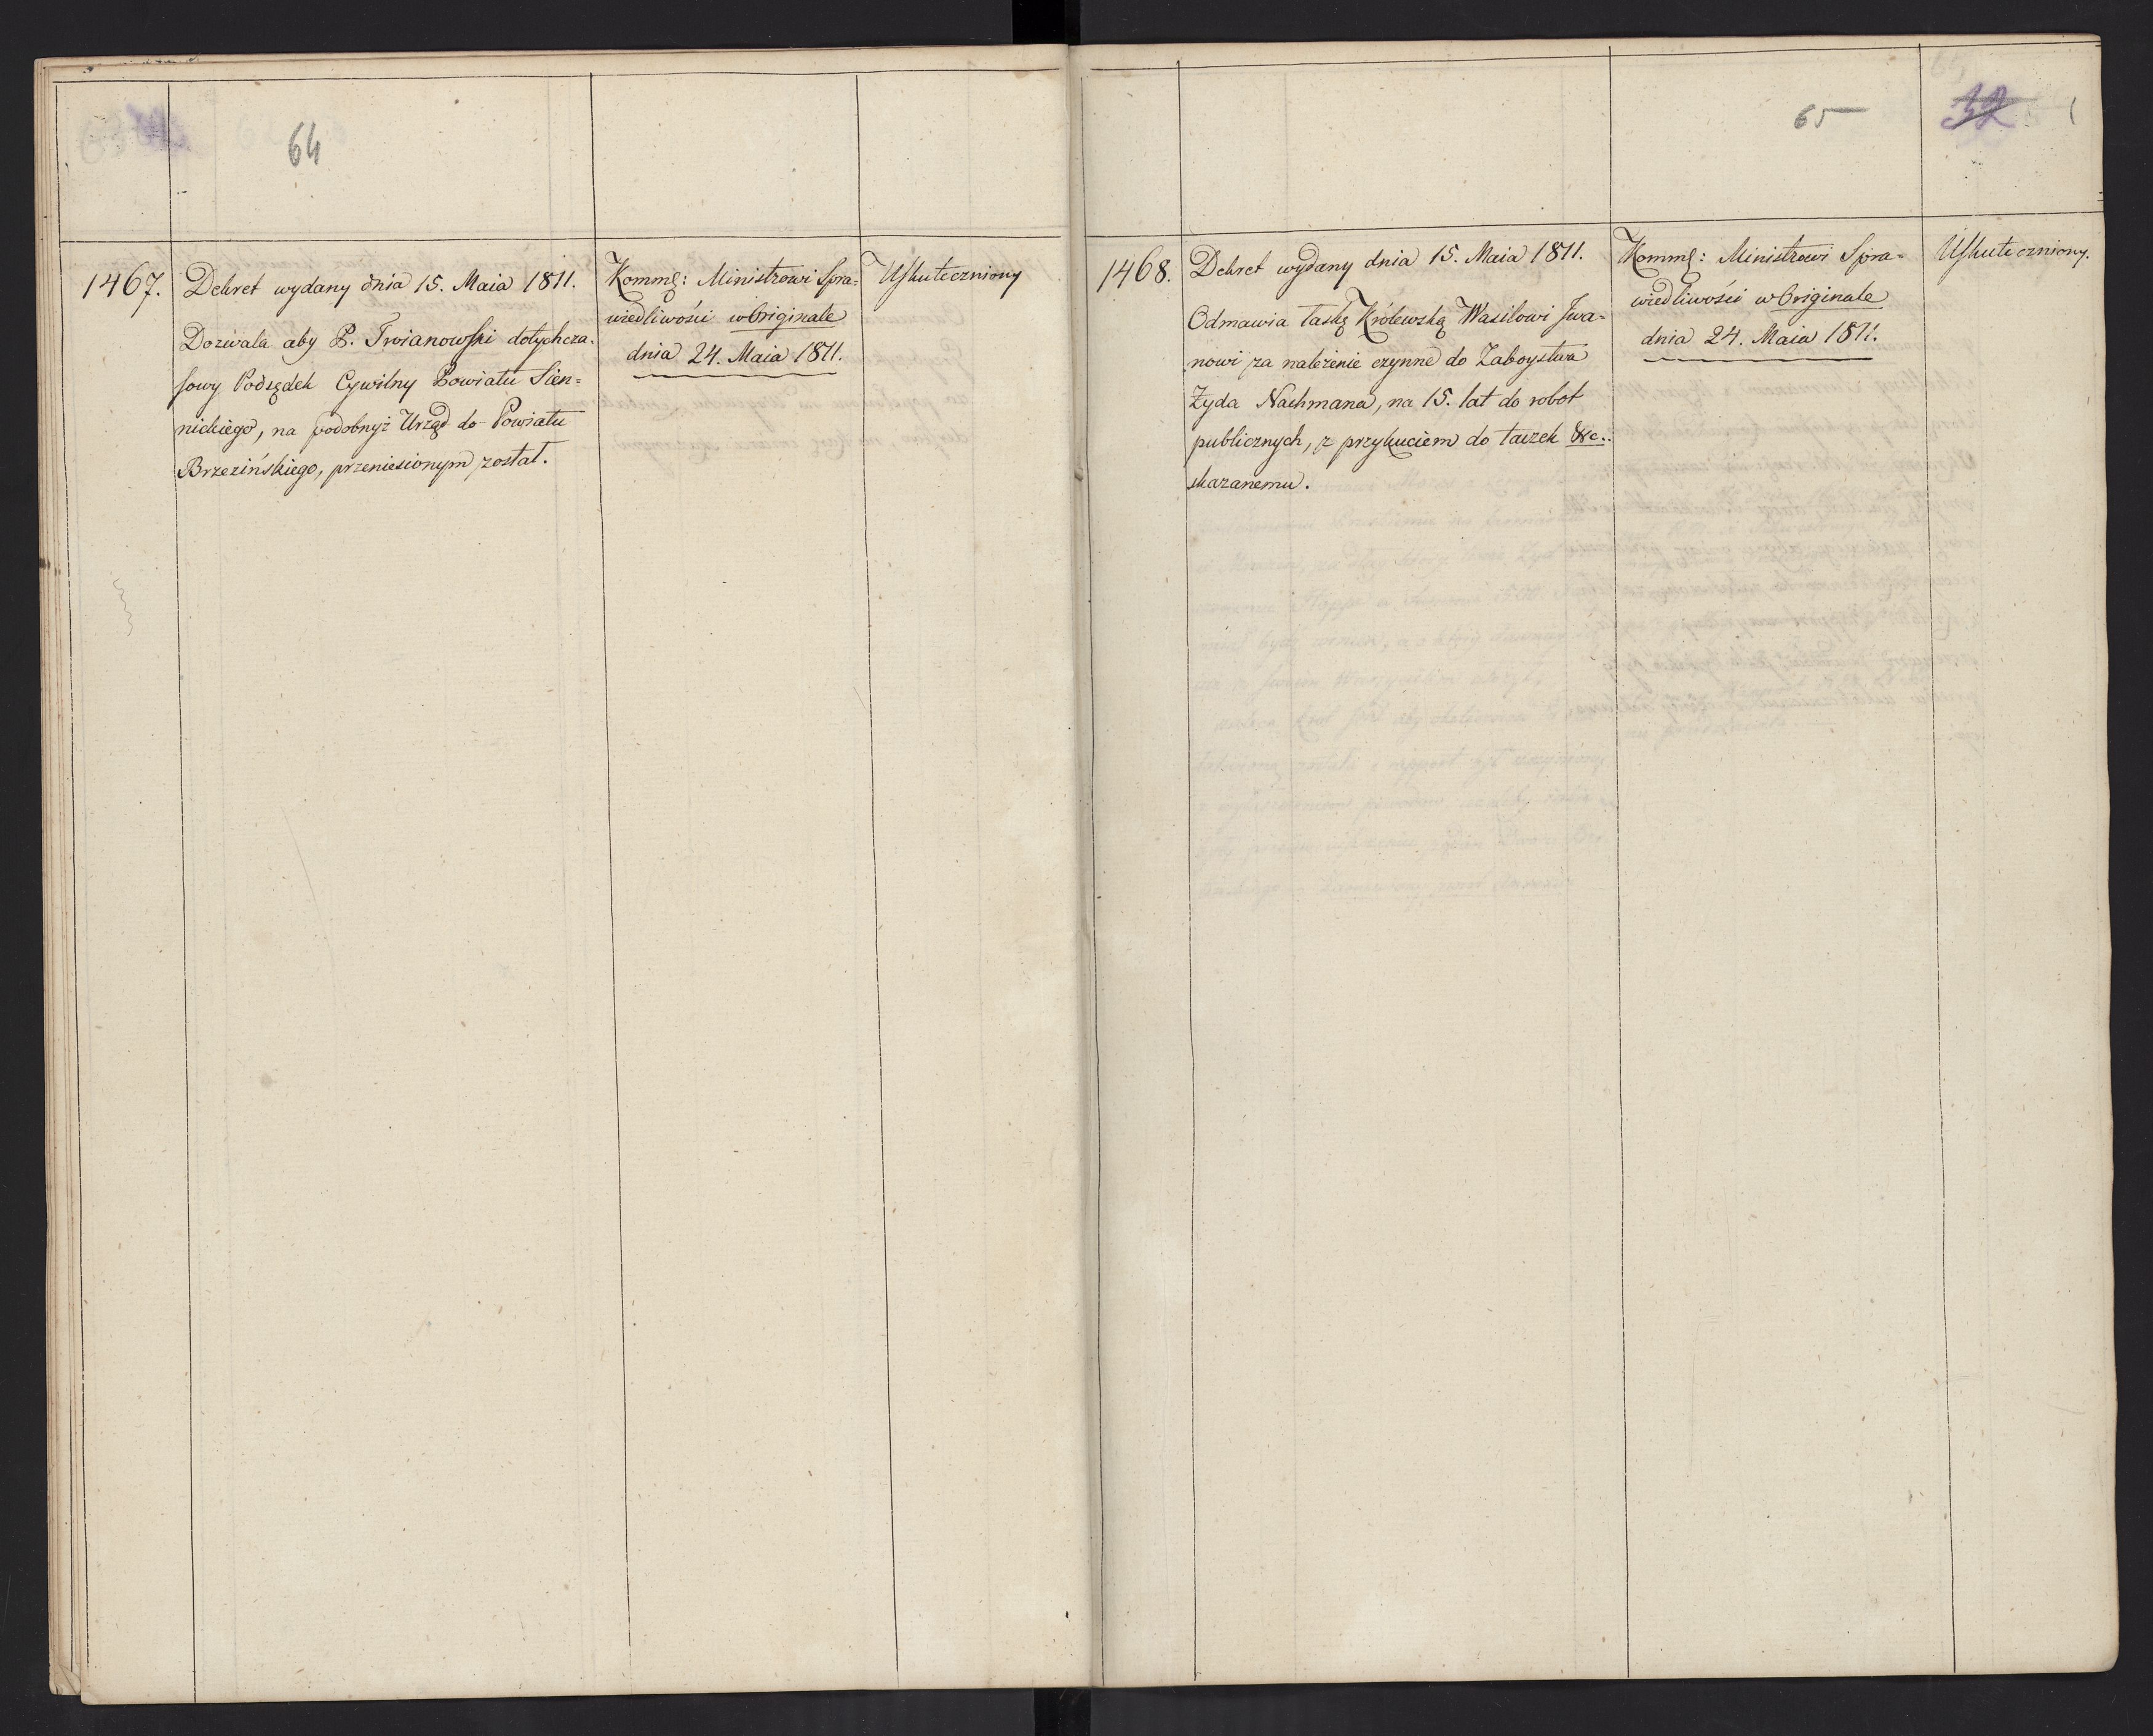 64
1467.
Dekret wydany dnia 15. Maia 1811.
Dozwala aby P. Troianowski dotychcza-
sowy Podsędek Cywilny Powiatu Sien=
nickiego, na podobnyż Urząd do Powiatu
Brzezińskiego, przeniesionym został.
Kommę: Ministrowi Spra=
wiedliwości w Originale
dnia 24. Maia 1811.
Uskuteczniony
65
32
1468.
Dekret wydany dnia 15. Maia 1811.
Odmawia łaskę Królewską Wasilowi Iwa=
nowi za należenie czynne do Zaboystwa
Żyda Nachmana, na 15. lat do robot
publicznych, z przykuciem do taczek &c..
skazanemu.
Kommę: Ministrowi Spra=
wiedliwości w Originale
dnia 24. Maia 1811.
Uskuteczniony.